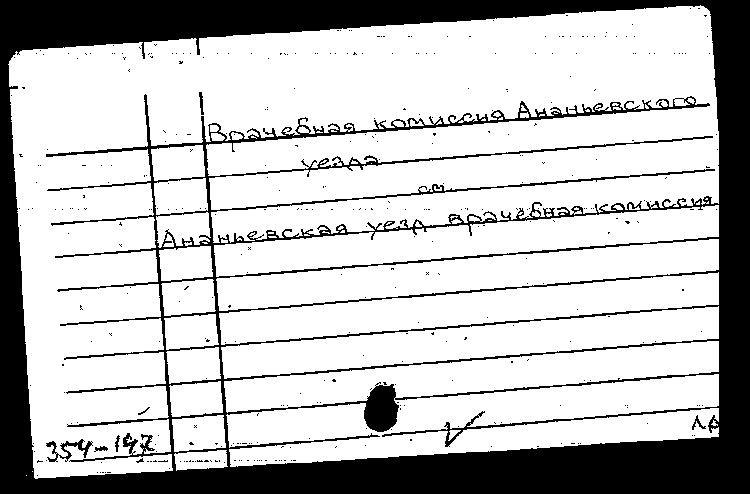 Врачебная комиссия Ананьевского
уезда
см.
Ананьевская уезд. врачебная комиссия
354-147
лр